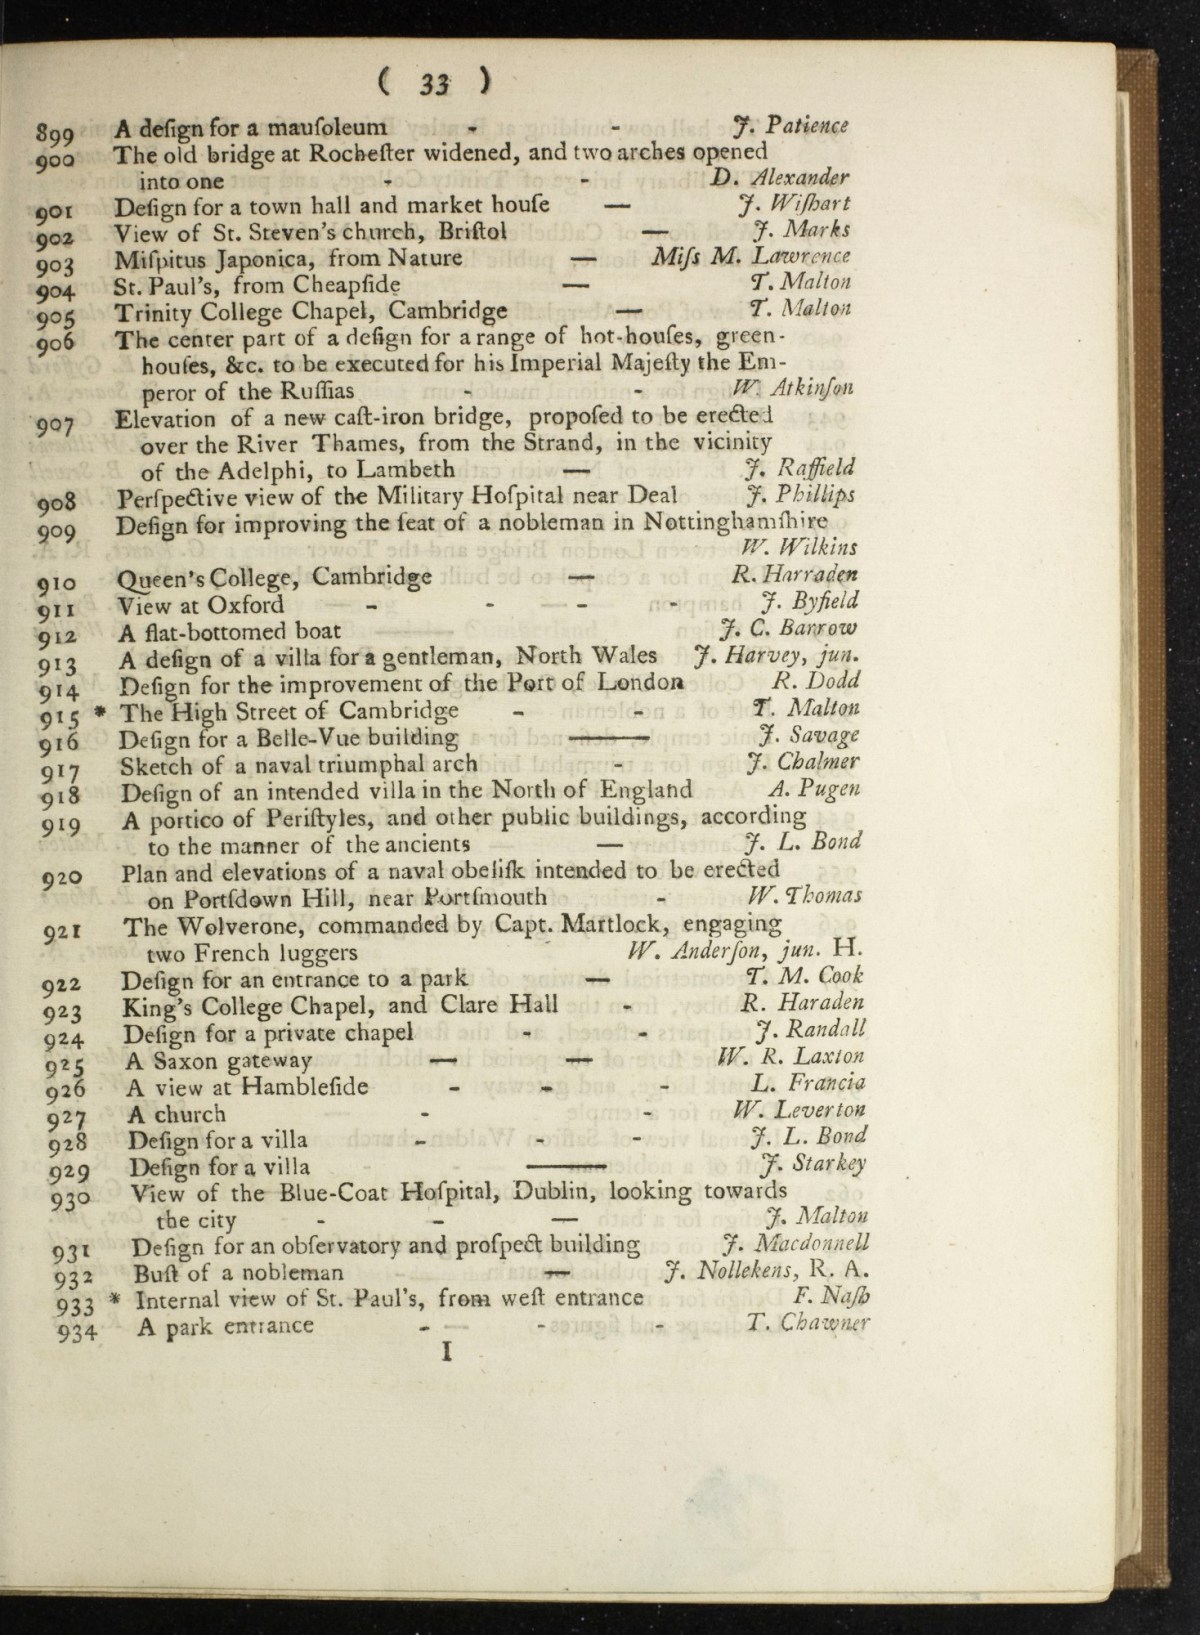 ( 33 )
899 A deſign for a mauſoleum - - J. Patience
900 The old bridge at Rocheſter widened, and two arches opened
into one - - D. Alexander
901 Deſign for a town hall and market houſe — J. Wiſhart
902 View of St. Steven's church, Briſtol — J. Marks
903 Miſpitus Japonica, from Nature — Miſs M. Lawrence
904 St. Paul's, from Cheapſide — T. Malton
905 Trinity College Chapel, Cambridge — T. Malton
906 The center part of a deſign for a range of hot-houſes, green-
houſes, &c. to be executed for his Imperial Majeſty the Em-
peror of the Ruſſias - - W. Atkinſon
907 Elevation of a new caſt-iron bridge, propoſed to be erected
over the River Thames, from the Strand, in the vicinity
of the Adelphi, to Lambeth — J. Raffield
908 Perſpective view of the Military Hoſpital near Deal J. Phillips
909 Deſign for improving the ſeat of a nobleman in Nottinghamſhire
W. Wilkins
910 Queen's College, Cambridge — R. Harraden
911 View at Oxford - - - - J. Byfield
912 A flat-bottomed boat J. C. Barrow
913 A deſign of a villa for a gentleman, North Wales J. Harvey, jun.
914 Deſign for the improvement of the Port of London R. Dodd
915 * The High Street of Cambridge - - T. Malton
916 Deſign for a Belle-Vue building —— J. Savage
917 Sketch of a naval triumphal arch - J. Chalmer
918 Deſign of an intended villa in the North of England A. Pugen
919 A portico of Periſtyles, and other public buildings, according
to the manner of the ancients — J. L. Bond
920 Plan and elevations of a naval obeliſk intended to be erected
on Portſdown Hill, near Portſmouth - W. Thomas
921 The Wolverone, commanded by Capt. Martlock, engaging
two French luggers W. Anderſon, jun. H.
922 Deſign for an entrance to a park — T. M. Cook
923 King's College Chapel, and Clare Hall - R. Haraden
924 Deſign for a private chapel - - J. Randall
925 A Saxon gateway — — W. R. Laxton
926 A view at Hambleſide - - - L. Francia
927 A church - - W. Leverton
928 Deſign for a villa - - - J. L. Bond
929 Deſign for a villa —— J. Starkey
930 View of the Blue-Coat Hoſpital, Dublin, looking towards
the city - - — J. Malton
931 Deſign for an obſervatory and proſpect building J. Macdonnell
932 Buſt of a nobleman — J. Nollekens, R. A.
933 * Internal view of St. Paul's, from weſt entrance F. Naſh
934 A park entrance - - - T. Chawner
I